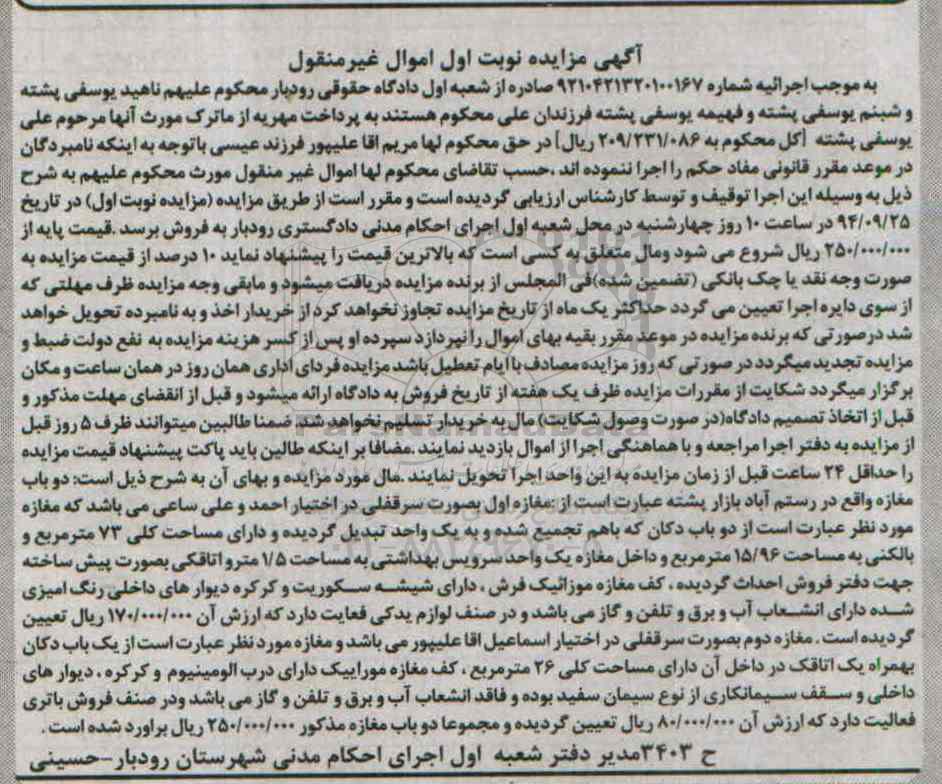 آگهی مزایده نوبت اول اموال غیرمنقول
به موجب اجرائیه شماره ۹۲۱۰۴۲۱۳۲۰۱۰۰۱۶۷ صادره از شعبه اول دادگاه حقوقی رودبار محکوم علیهم ناهید یوسفی پشته
و شبنم یوسفی پشته و فهیمه یوسفی پشته فرزندان علی محکوم هستند به پرداخت مهریه از ماترک مورث آنها مرحوم علی
یوسفی پشته [کل محکوم به ۲۰۹/۲۳۱/۰۸۶ ریال] در حق محکوم لها مریم اقا علیپور فرزند عیسی باتوجه به اینکه نامبردگان
در موعد مقرر قانونی مفاد حکم را اجرا ننموده اند ،حسب تقاضای محکوم لها اموال غیر منقول مورث محکوم علیهم به شرح
ذیل به وسیله این اجرا توقیف و توسط کارشناس ارزیابی گردیده است و مقرر است از طریق مزایده (مزایده نوبت اول) در تاریخ
۹۴/۰۹/۲۵ در ساعت ۱۰ روز چهارشنبه در محل شعبه اول اجرای احکام مدنی دادگستری رودبار به فروش برسد .قیمت پایه از
۲۵۰/۰۰۰/۰۰۰ ریال شروع می شود ومال متعلق به کسی است که بالاترین قیمت را پیشنهاد نماید ۱۰ درصد از قیمت مزایده به
صورت وجه نقد یا چک بانکی (تضمین شده)فی المجلس از برنده مزایده دریافت میشود و مابقی وجه مزایده ظرف مهلتی که
از سوی دایره اجرا تعیین می گردد حداکثر یک ماه از تاریخ مزایده تجاوز نخواهد کرد از خریدار اخذ و به نامبرده تحویل خواهد
شد درصورتی که برنده مزایده در موعد مقرر بقیه بهای اموال را نپردازد سپرده او پس از کسر هزینه مزایده به نفع دولت ضبط و
مزایده تجدید میگردد در صورتی که روز مزایده مصادف با ایام تعطیل باشد مزایده فردای اداری همان روز در همان ساعت و مکان
برگزار میگردد شکایت از مقررات مزایده ظرف یک هفته از تاریخ فروش به دادگاه ارائه میشود و قبل از انقضای مهلت مذکور و
قبل از اتخاذ تصمیم دادگاه(در صورت وصول شکایت) مال به خریدار تسلیم نخواهد شد. ضمنا طالبین میتوانند ظرف ۵ روز قبل
از مزایده به دفتر اجرا مراجعه و با هماهنگی اجرا از اموال بازدید نمایند .مضافا بر اینکه طالبن باید پاکت پیشنهاد قیمت مزایده
را حداقل ۲۴ ساعت قبل از زمان مزایده به این واحد اجرا تحویل نمایند .مال مورد مزایده و بهای آن به شرح ذیل است: دو باب
مغازه واقع در رستم آباد بازار پشته عبارت است از :مغازه اول بصورت سرقفلی در اختیار احمد و علی ساعی می باشد که مغازه
مورد نظر عبارت است از دو باب دکان که باهم تجمیع شده و به یک واحد تبدیل گردیده و دارای مساحت کلی ۷۳ مترمربع و
بالکنی به مساحت ۱۵/۹۶ مترمربع و داخل مغازه یک واحد سرویس بهداشتی به مساحت ۱/۵ متر و اتاقکی بصورت پیش ساخته
جهت دفتر فروش احداث گردیده ، کف مغازه موزائیک فرش ، دارای شیشه سکوریت و کرکره دیوار های داخلی رنگ امیزی
شده دارای انشعاب آب و برق و تلفن و گاز می باشد و در صنف لوازم یدکی فعایت دارد که ارزش آن ۱۷۰/۰۰۰/۰۰۰ ریال تعیین
گردیده است . مغازه دوم بصورت سرقفلی در اختیار اسماعیل اقا علیپور می باشد و مغازه مورد نظر عبارت است از یک باب دکان
بهمراه یک اتاقک در داخل آن دارای مساحت کلی ۲۶ مترمربع ، کف مغازه موراییک دارای درب الومینیوم و کرکره ، دیوار های
داخلی و سقف سیمانکاری از نوع سیمان سفید بوده و فاقد انشعاب آب و برق و تلفن و گاز می باشد ودر صنف فروش باتری
فعالیت دارد که ارزش آن ۸۰/۰۰۰/۰۰۰ ریال تعیین گردیده و مجموعا دو باب مغازه مذکور ۲۵۰/۰۰۰/۰۰۰ ریال براورد شده است .
ح ۳۴۰۳مدیر دفتر شعبه اول اجرای احکام مدنی شهرستان رودبار-حسینی